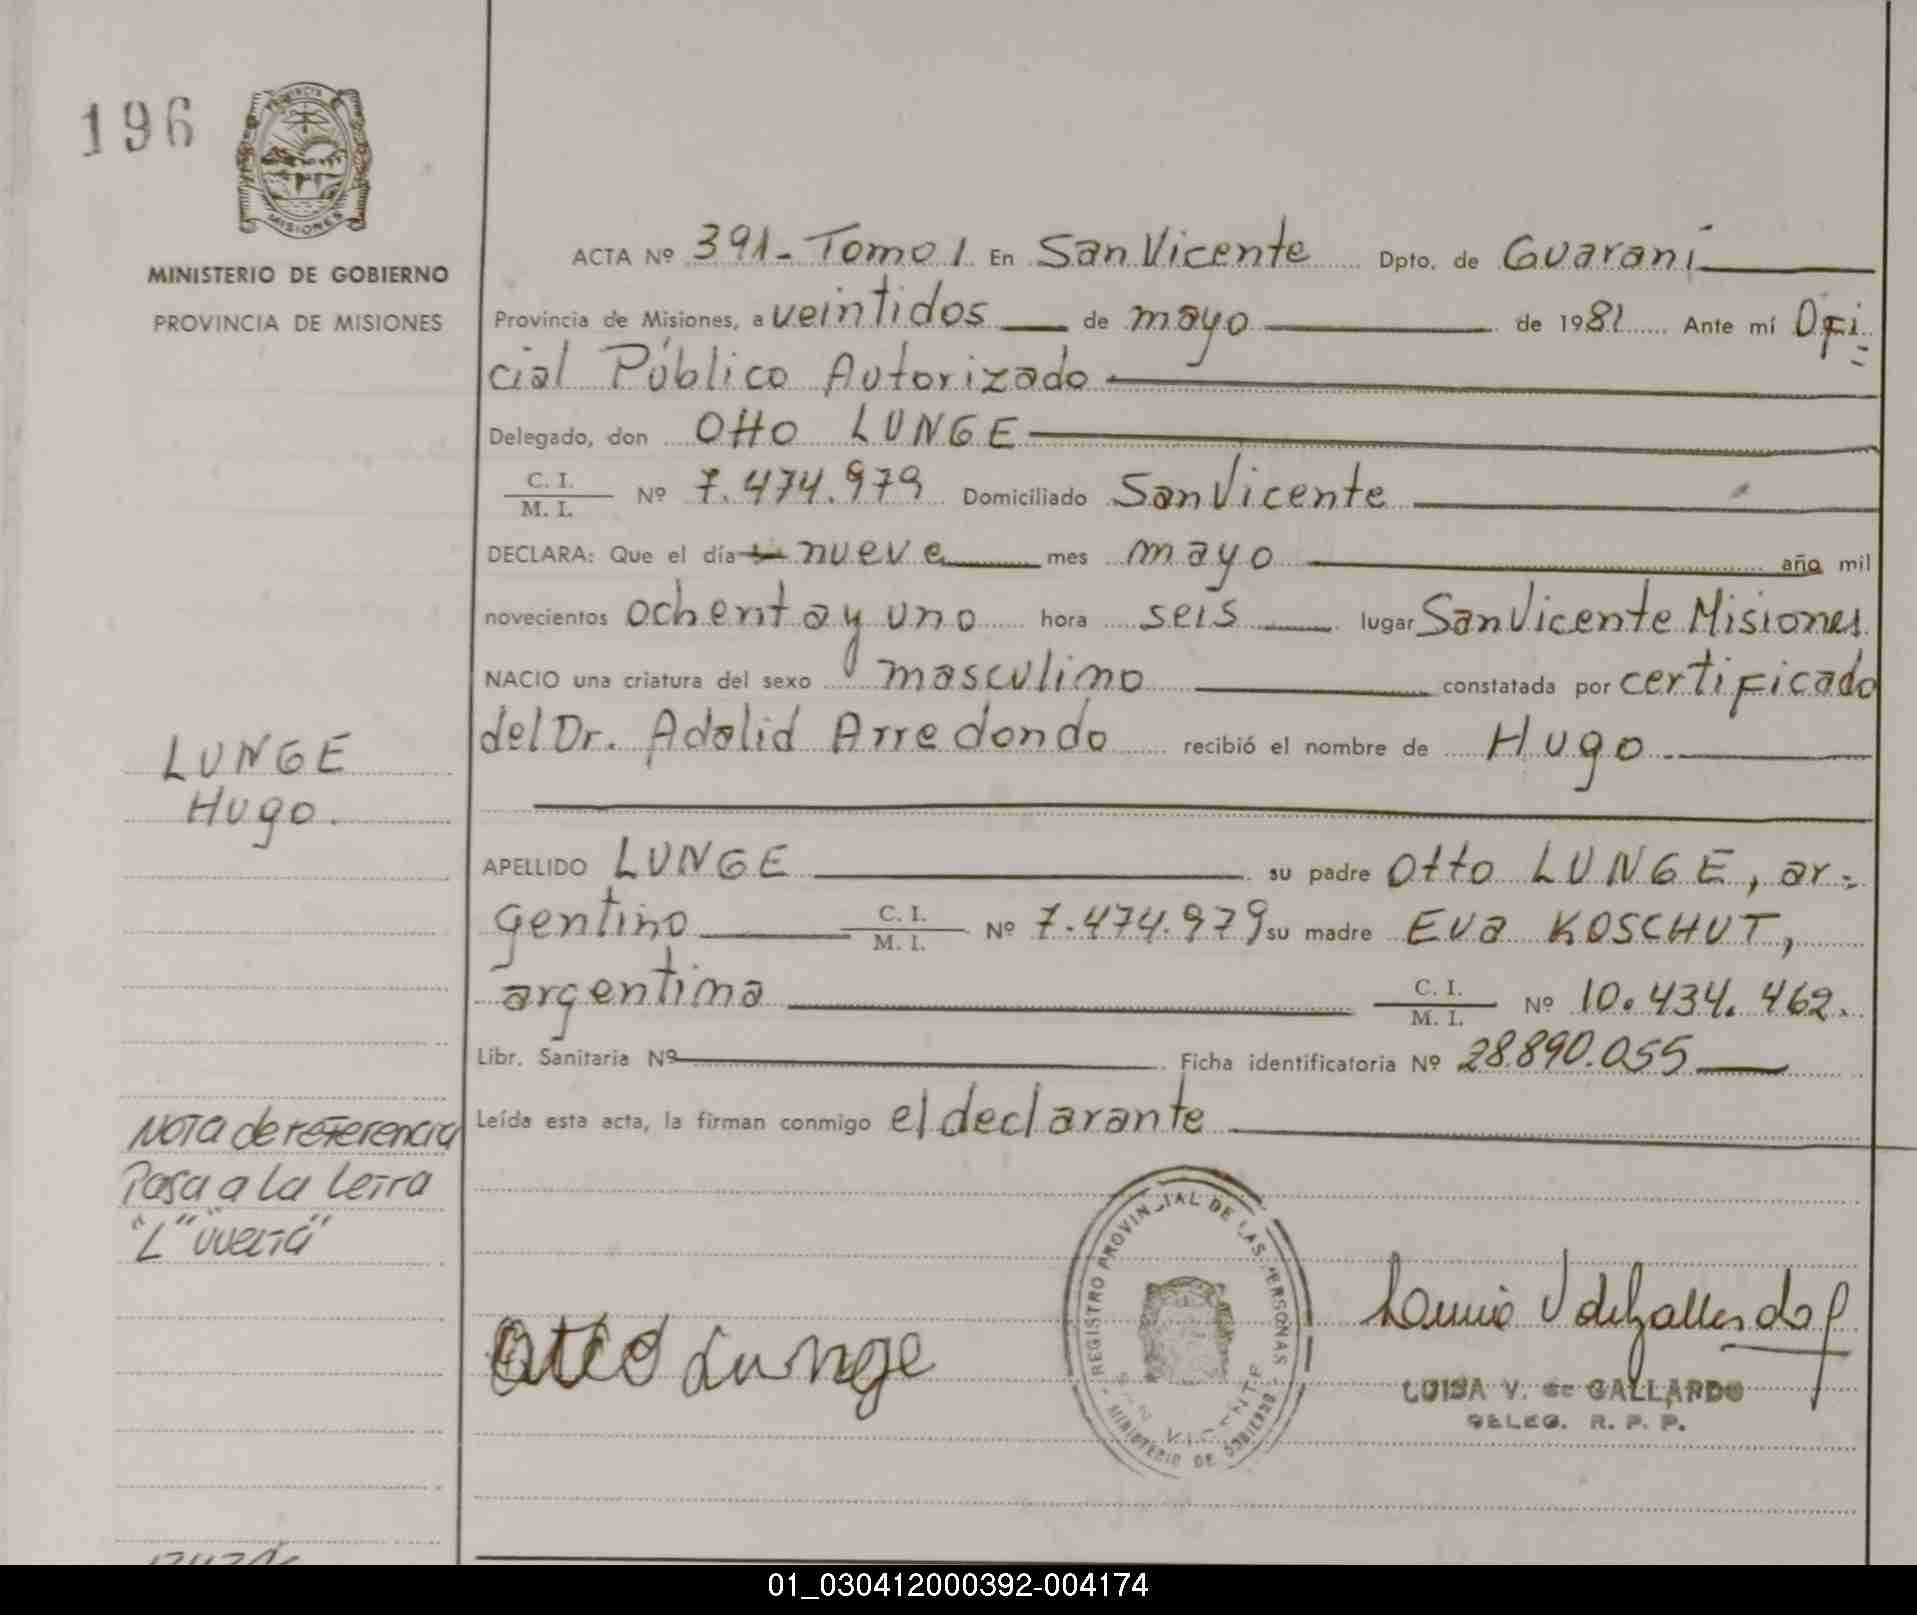 196
PROVINCIA
MISIONES
MINISTERIO DE GOBIERNO
PROVINCIA DE MISIONES
ACTA Nº 391 - Tomo 1 En San Vicente Dpto. de Guaraní
Provincia de Misiones, a veintidos de mayo de 1981 Ante mí Ofi=
cial Público Autorizado
Delegado, don Otto LUNGE
C. I.
M. I. Nº 7.474.979 Domiciliado San Vicente
DECLARA: Que el día nueve mes mayo año mil
novecientos ochenta y uno hora seis lugar San Vicente Misiones
NACIO una criatura del sexo masculino constatada por certificado
del Dr. Adalid Arredondo recibió el nombre de Hugo
LUNGE
Hugo.
APELLIDO LUNGE su padre Otto LUNGE, ar=
gentino C. I. M. I. Nº 7.474.979 su madre Eva KOSCHUT,
argentina C. I. M. I. Nº 10.434.462.
Libr. Sanitaria Nº Ficha identificatoria Nº 28.890.055
Leída esta acta, la firman conmigo el declarante
Nota de referencia
Pasa a la Letra
"L" "vuelta"
REGISTRO PROVINCIAL DE LAS PERSONAS
SAN VICENTE
MINISTERIO DE GOBIERNO
Otto Lunge
LUISA V. de GALLARDO
DELEG. R. P. P.
01_030412000392-004174